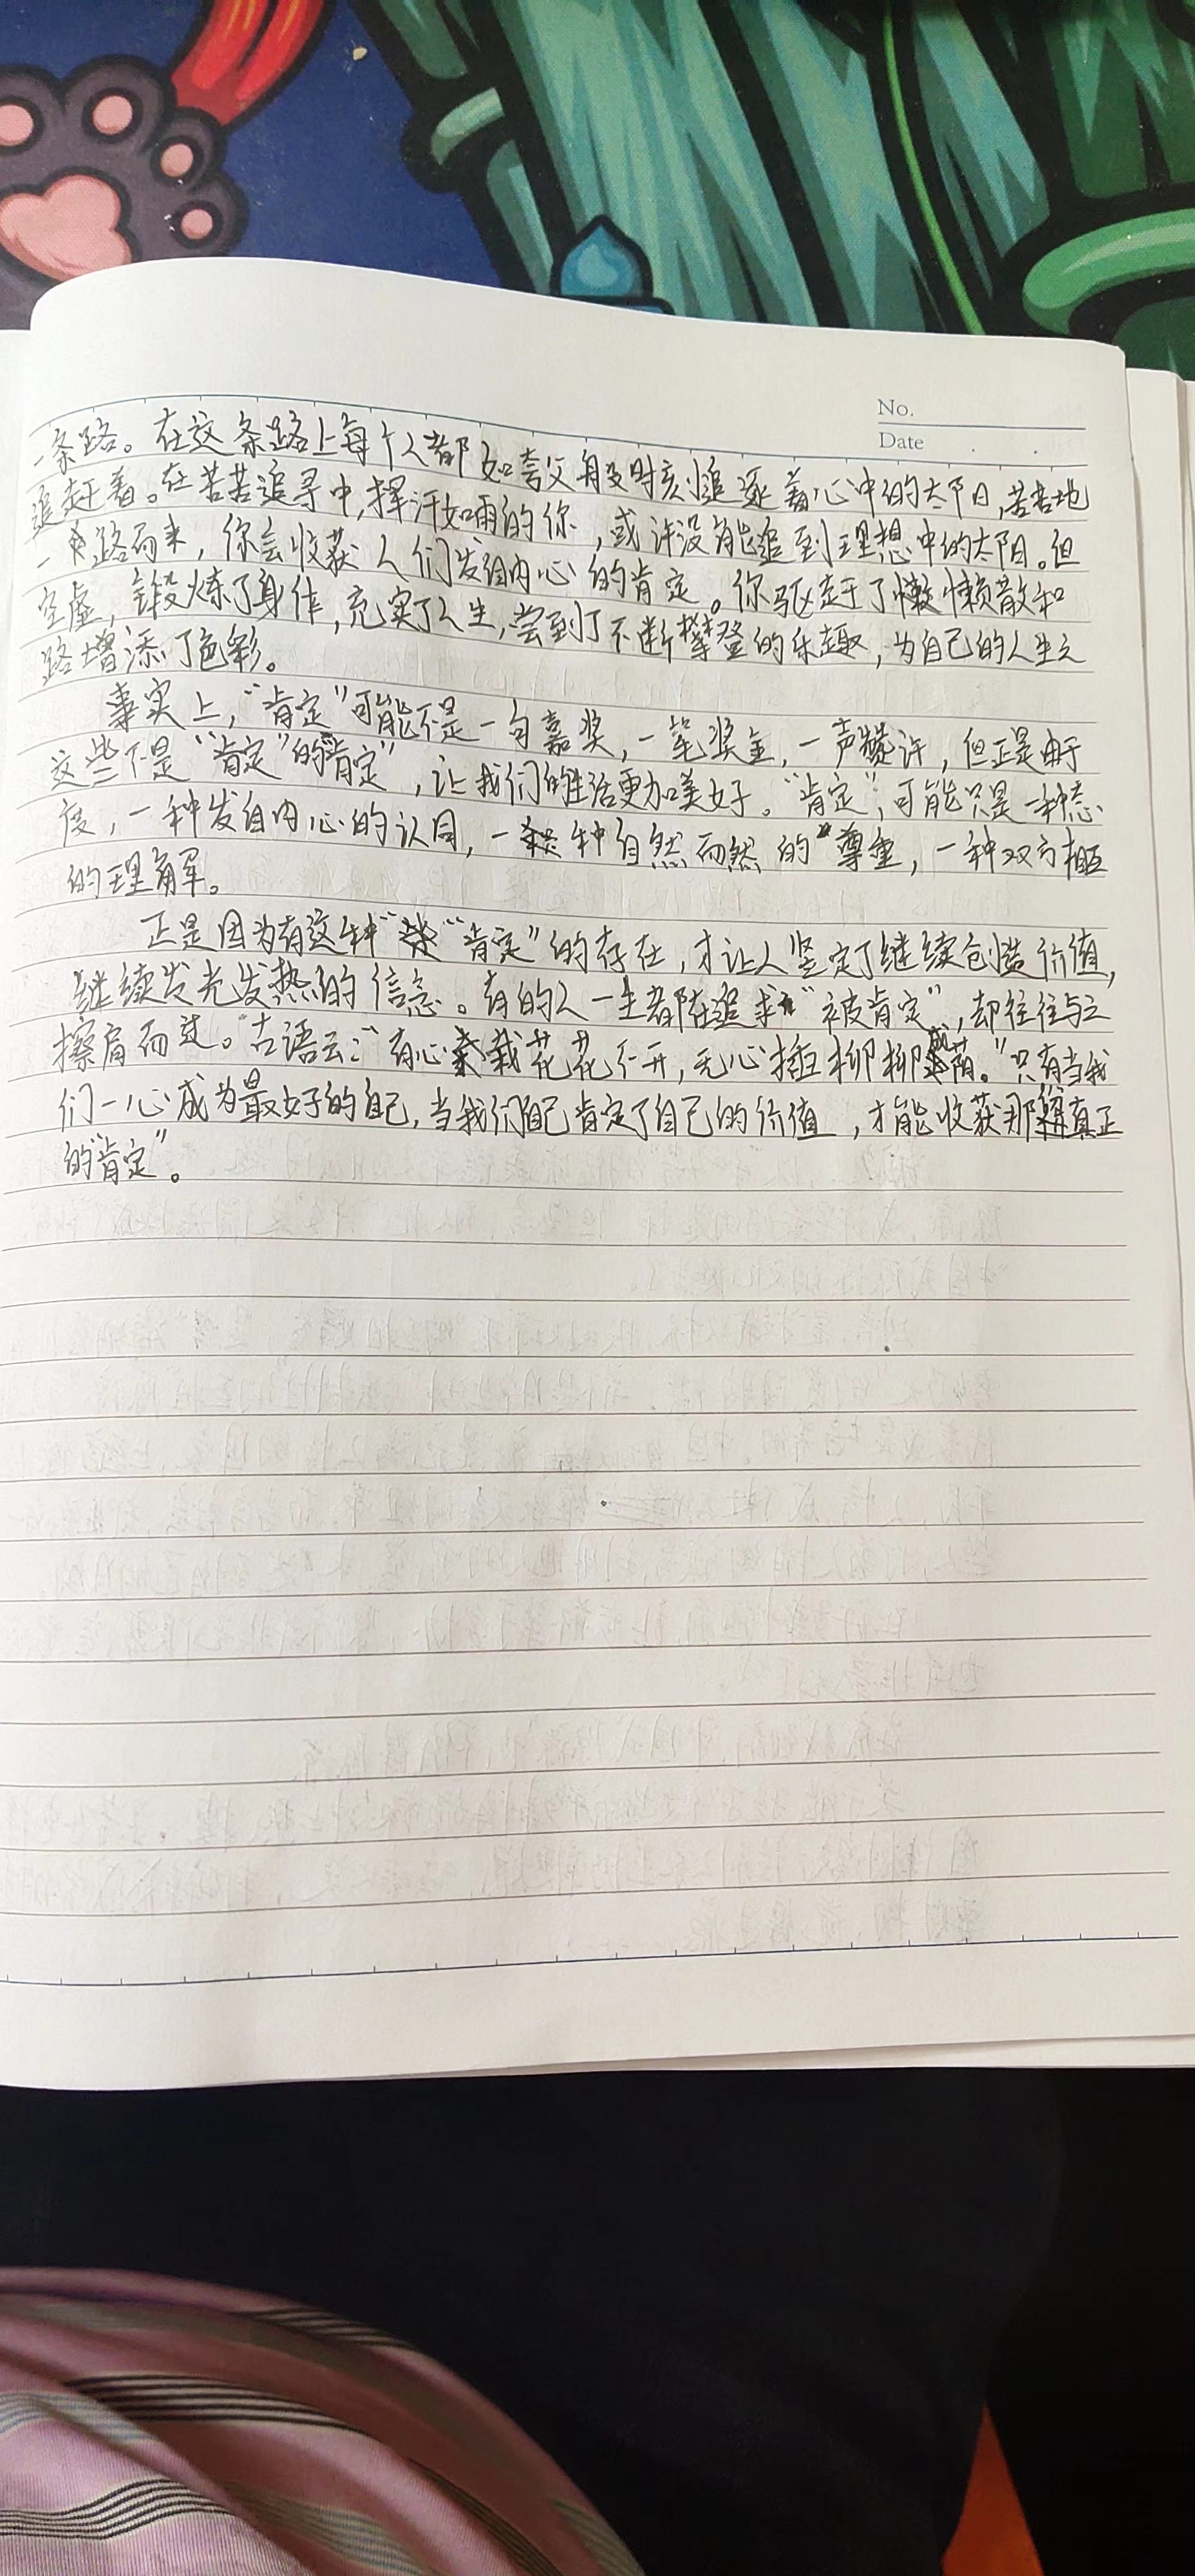 No.
Date
一条路。在这条路上每个人都如夸父般时刻追逐着心中的太阳,苦苦地
追赶着。在苦苦追寻中,挥汗如雨的你,或许没能追到理想中的太阳。但
一路而来,你会收获人们发自内心的肯定。你驱走了懒散和
空虚,锻炼了身体,充实了人生,尝到了不断攀登的乐趣,为自己的人生之
路增添了色彩。
事实上,“肯定”可能不是一句嘉奖,一笔奖金,一声赞许,但正是由于
这些不是“肯定”的“肯定”,让我们的生活更加美好。“肯定”,可能只是一种态
度,一种发自内心的认同,一种自然而然的尊重,一种双方相互
的理解。
正是因为有这种“肯定”的存在,才让人坚定了继续创造价值,
继续发光发热的信念。有的人一生都在追求“被肯定”,却往往与之
擦肩而过。古语云:“有心栽花花不开,无心插柳柳成荫。”只有当我
们一心成为最好的自己,当我们自己肯定了自己的价值,才能收获那真正
的“肯定”。